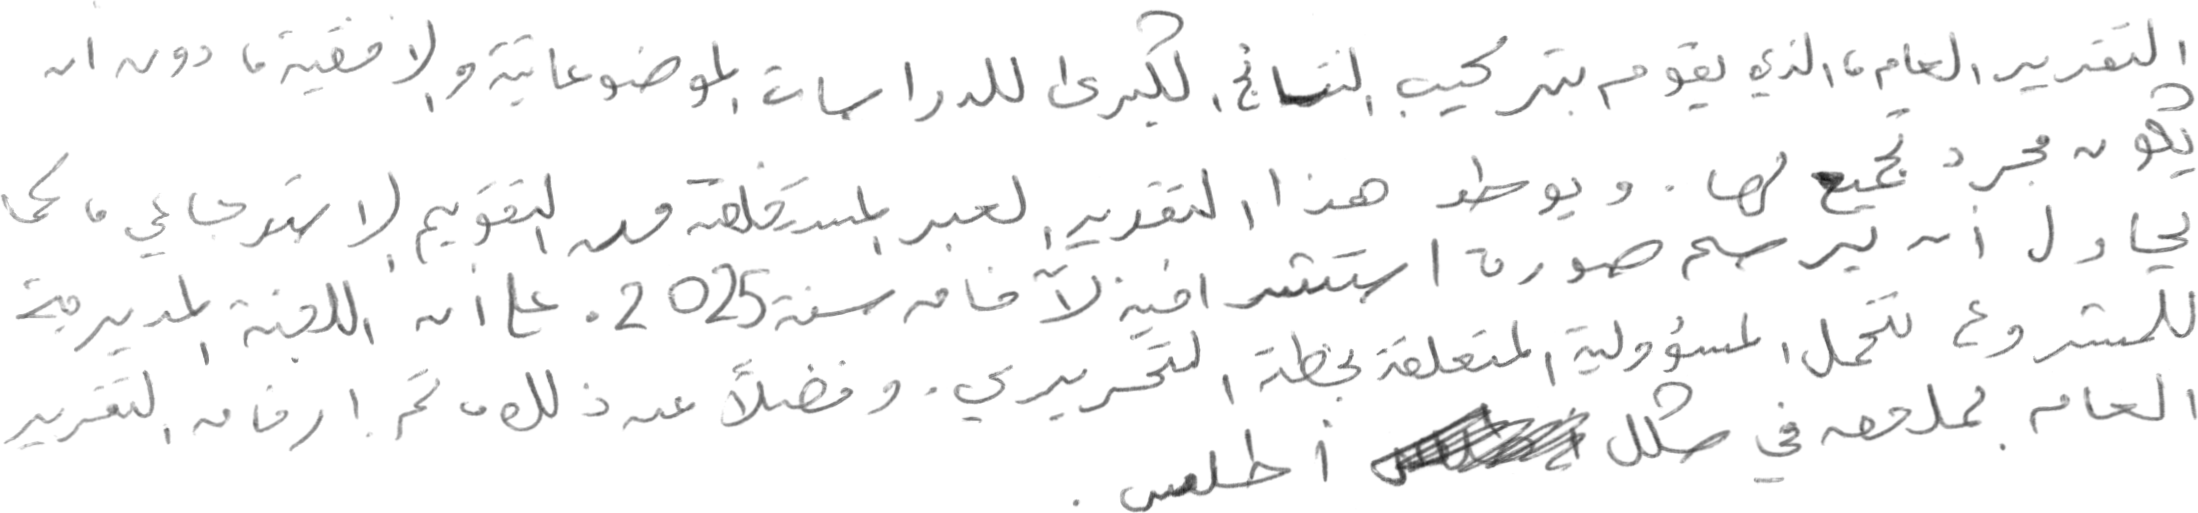 التقرير العام، الذي يقوم بتركيب النتائج الكبرى للدراسات الموضوعاتية والافقية، دون أن
يكون مجرد تجميع لها. ويوطد هذا التقرير العبر المستخلصة من التقويم الاسترجاعي، كما
يحاول أن يرسم صورة استشرافية لآفاق سنة 2025. على أن اللجنة المديرية
للمشروع تتحمل المسؤولية المتعلقة بخطة التحريري. وفضلاً عن ذلك، تم إرفاق التقرير
العام بملاحق في شكل أطلس.